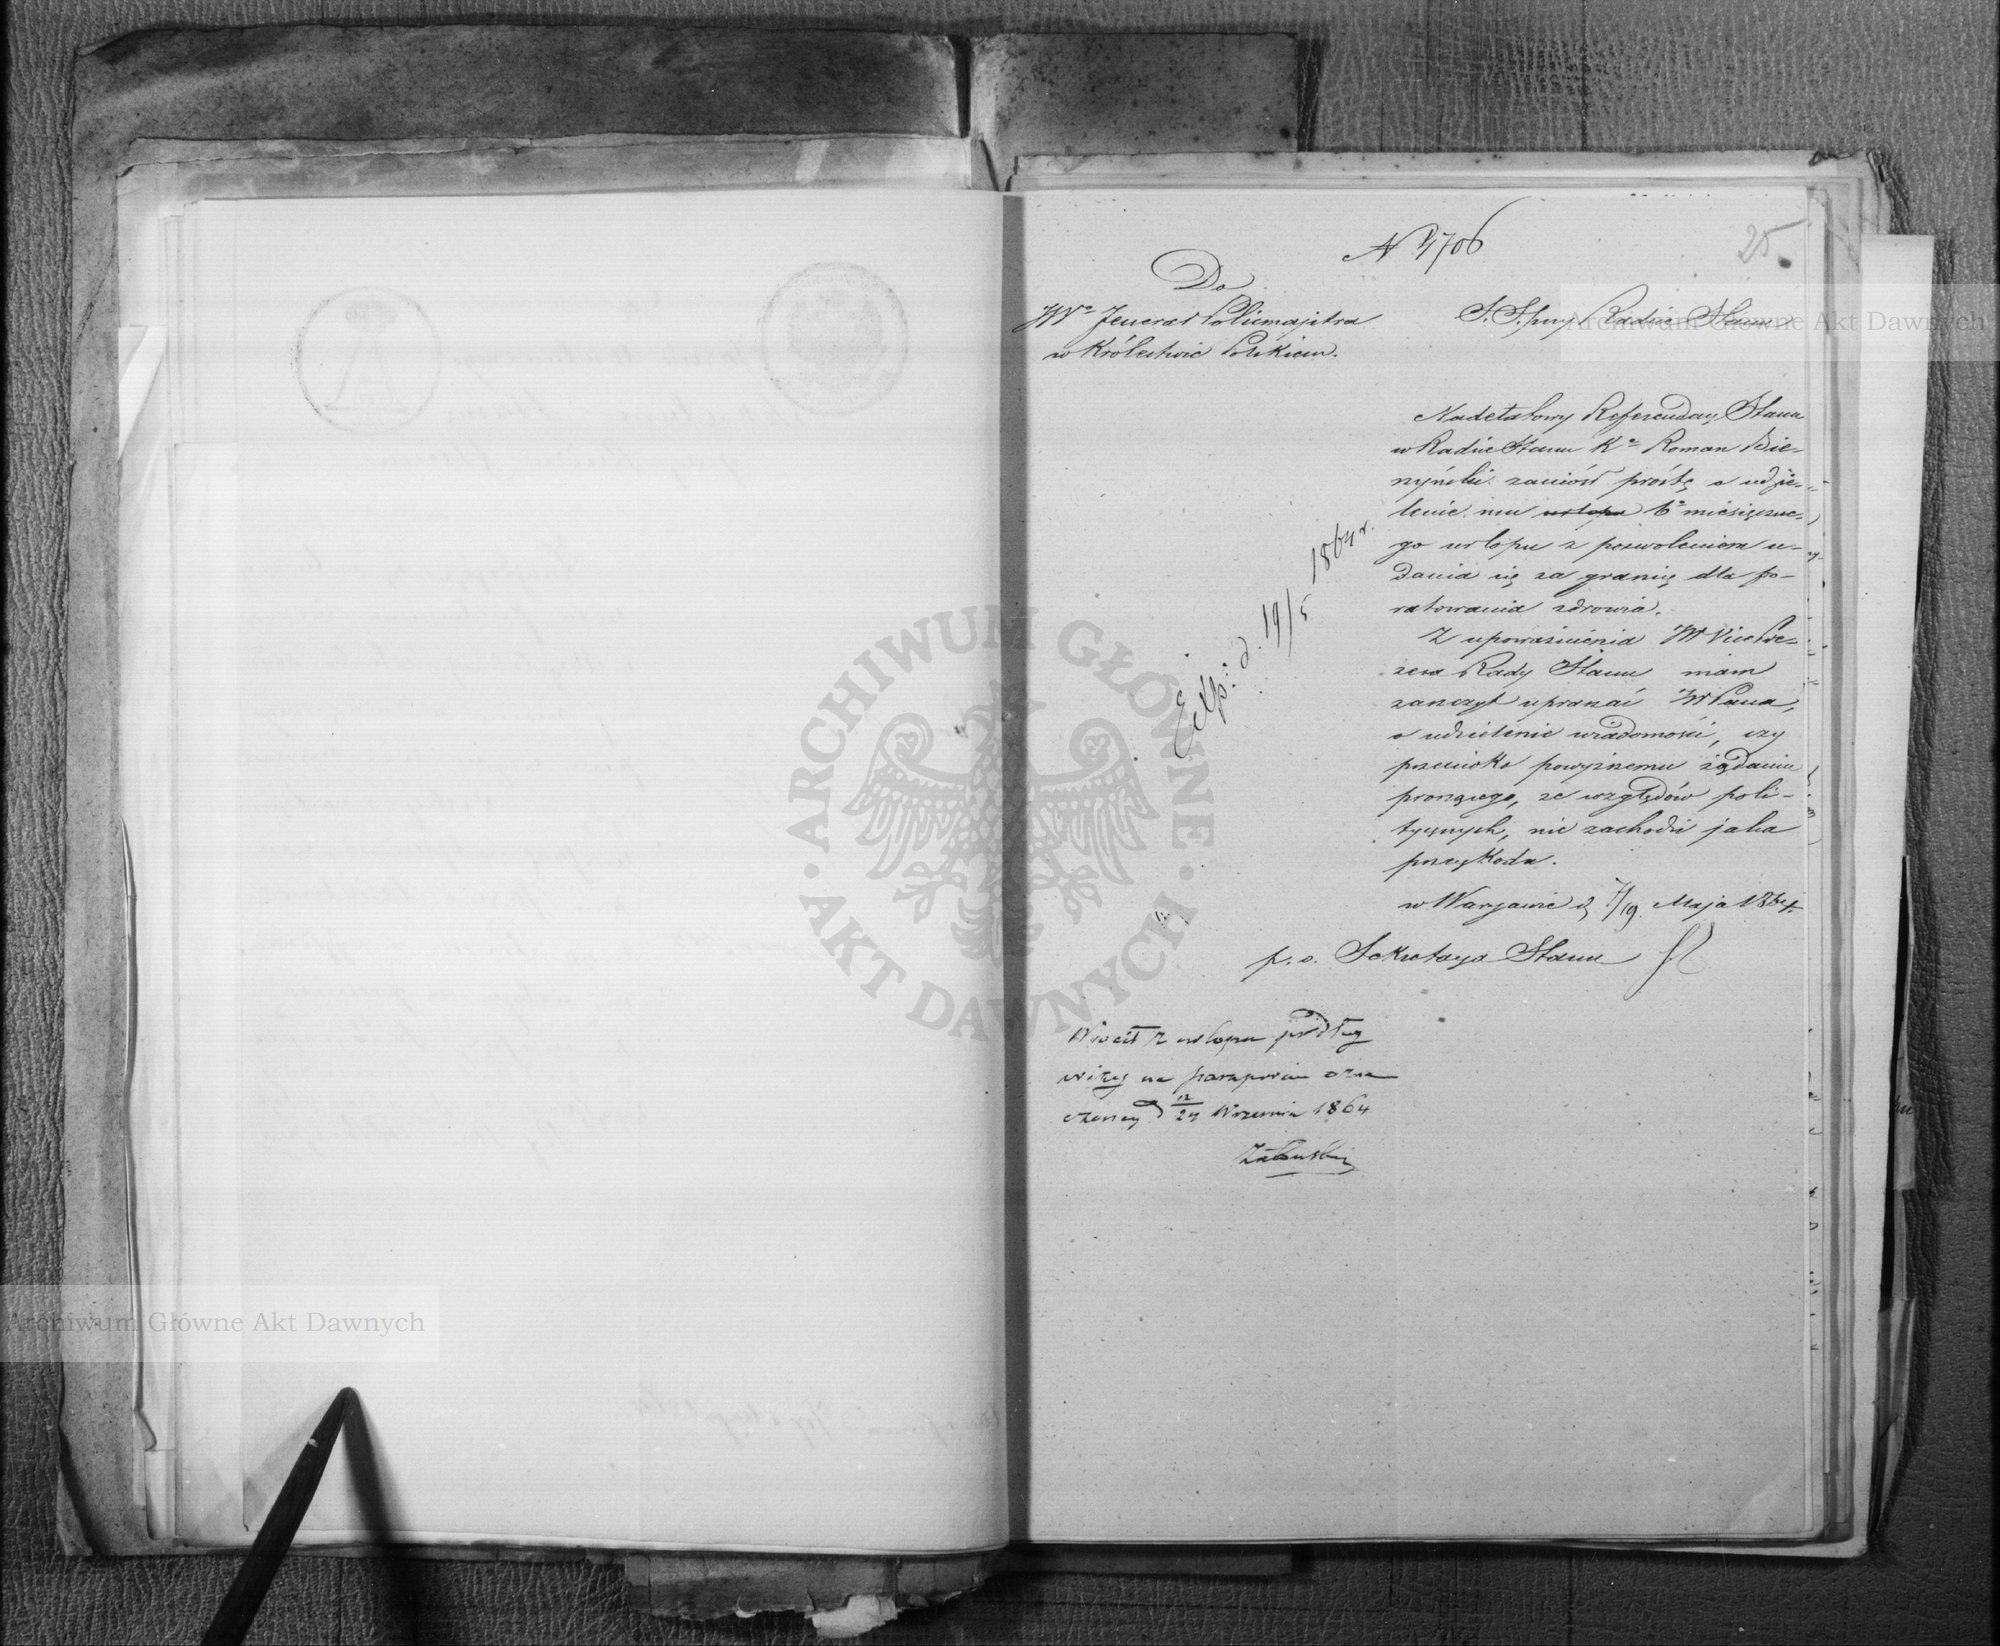 N 4706
25
Do
JWo Jenerał Policmajstra
w Królestwie Polskiem.
S. S. przy Radzie Stanu
Nadetatowy Referendarz Stanu
w Radzie Stanu Ko Roman Bie-
rzyński zaniósł prośbę o udzie-
lenie mu urlopu 6o miesięczne-
go urlopu z pozwoleniem u-
dania się za granicę dla po-
ratowania zdrowia.
Z upoważnienia JW Vice Pre-
zesa Rady Stanu mam
zaszczyt upraszać JW Pana,
o udzielenie wiadomości, czy
przeciwko powyższemu żądaniu
proszącego, ze względów poli-
tycznych, nie zachodzi jaka
przeszkoda.
w Warszawie d. 7/19 Maja 1864.
p. o. Sekretarza Stanu
Exp: d. 19/5 1864 r.
Wrócił z urlopu podług
wizy na paszporcie ozna
czoney d 12/24 Września 1864
Załuski
ARCHIWUM GŁÓWNE AKT DAWNYCH
Archiwum Główne Akt Dawnych
Archiwum Główne Akt Dawnych